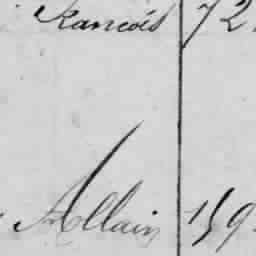 francois 72
Allain 159